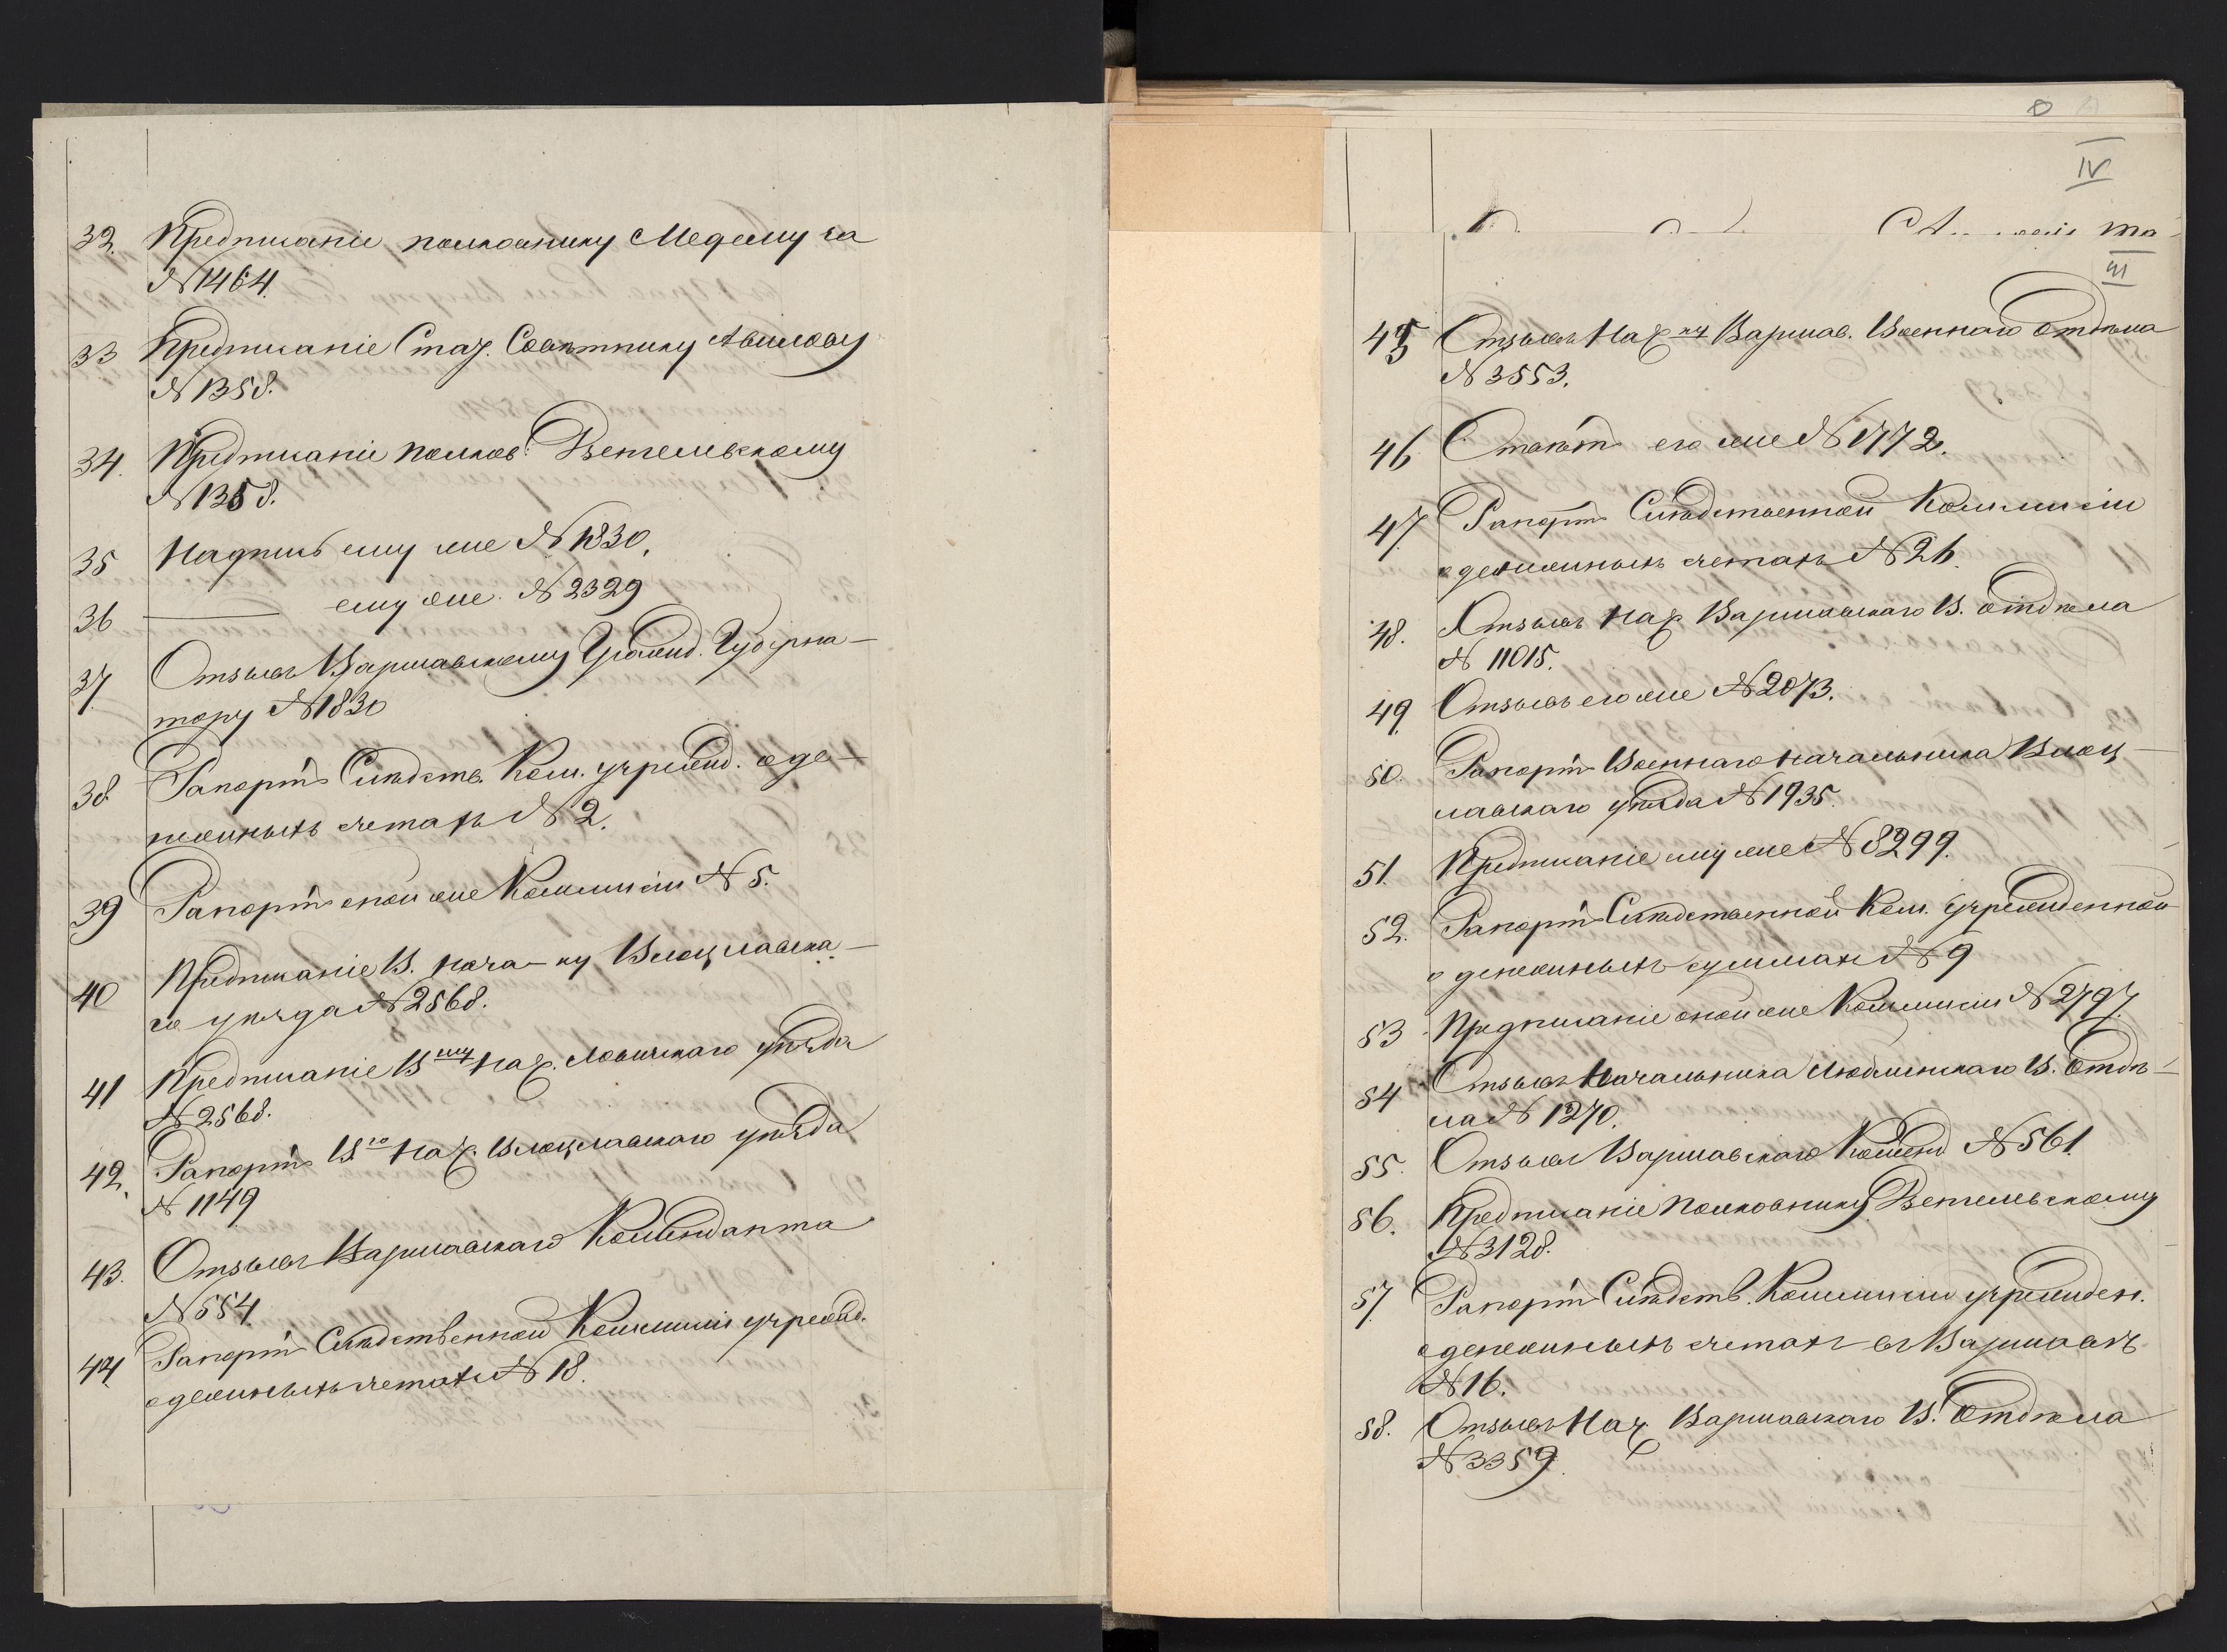 32. Предписаніе полковнику Медему за
№ 1464.
33 Предписаніе Стат. Совѣтнику Авилову
№ 1358.
34. Предписаніе полков. Ветельскому
№ 1358.
35 Надпись ему же № 1830.
36 ——— ему же № 2329
37 Отзывъ Варшавскому Гражд. Губерна-
тору № 1830
38 Рапортъ Слѣдств. Ком. учрежд. о де-
нежныхъ счетахъ № 2.
39 Рапортъ оной же Коммисіи № 5.
40 Предписаніе В. нача-ку Влоцлавска-
го уѣзда № 2568.
41 Предписаніе В ному Нач. Ловичскаго уѣзда
№ 2568.
42. Рапортъ В. го Нач. Влоцлавскаго уѣзда
№ 1149
43. Отзывъ Варшавскаго Коменданта
№ 554
44 Рапортъ Слѣдственной Коммисіи учрежд.
о денежныхъ счетахъ № 18.
IV
та-
III
45 Отзывъ Нач ку Варшав. Военнаго отдѣла
№ 3553.
46 Отвѣтъ его же № 1772.
47. Рапортъ Слѣдственной Коммисіи
о денежныхъ счетахъ № 26.
48. Отзывъ Нач. Варшавскаго В. отдѣла
№ 11015.
49. Отзывъ его же № 2073.
50. Рапортъ Военнаго начальника Влоц-
лавскаго уѣзда № 1935.
51. Предписаніе ему же № 8299.
52. Рапортъ Слѣдственной Ком. учрежденной
о денежныхъ суммахъ № 9
53 Предписаніе оной же Коммисіи № 2797.
54 Отзывъ Начальника Люблинскаго В. Отдѣ-
ла № 1270.
55. Отзывъ Варшавскаго Коменд № 561.
56. Предписаніе Полковнику Ветельскому
№ 3128.
57. Рапортъ Слѣдств. Коммисіи учрежден.
о денежныхъ счетахъ въ Варшавѣ
№ 16.
58. Отзывъ Нач. Варшавскаго В. Отдѣла
№ 3359.